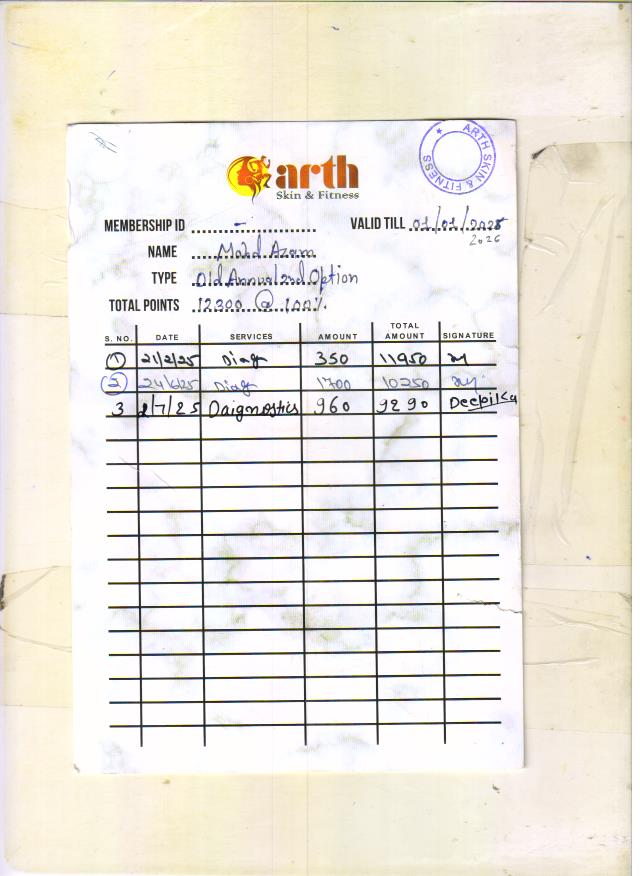 arth
Skin & Fitness
ARTH SKIN & FITNESS
MEMBERSHIP ID - VALID TILL 01/01/2025
2026
NAME Mohd Azam
TYPE Old Annual 2nd Option
TOTAL POINTS 12300 @ 100%
S. NO. DATE SERVICES AMOUNT TOTAL AMOUNT SIGNATURE
1 21/2/25 Diag 350 11950
2 24/6/25 Diag 1700 10250
3 2/7/25 Daignostics 960 9290 Deepika